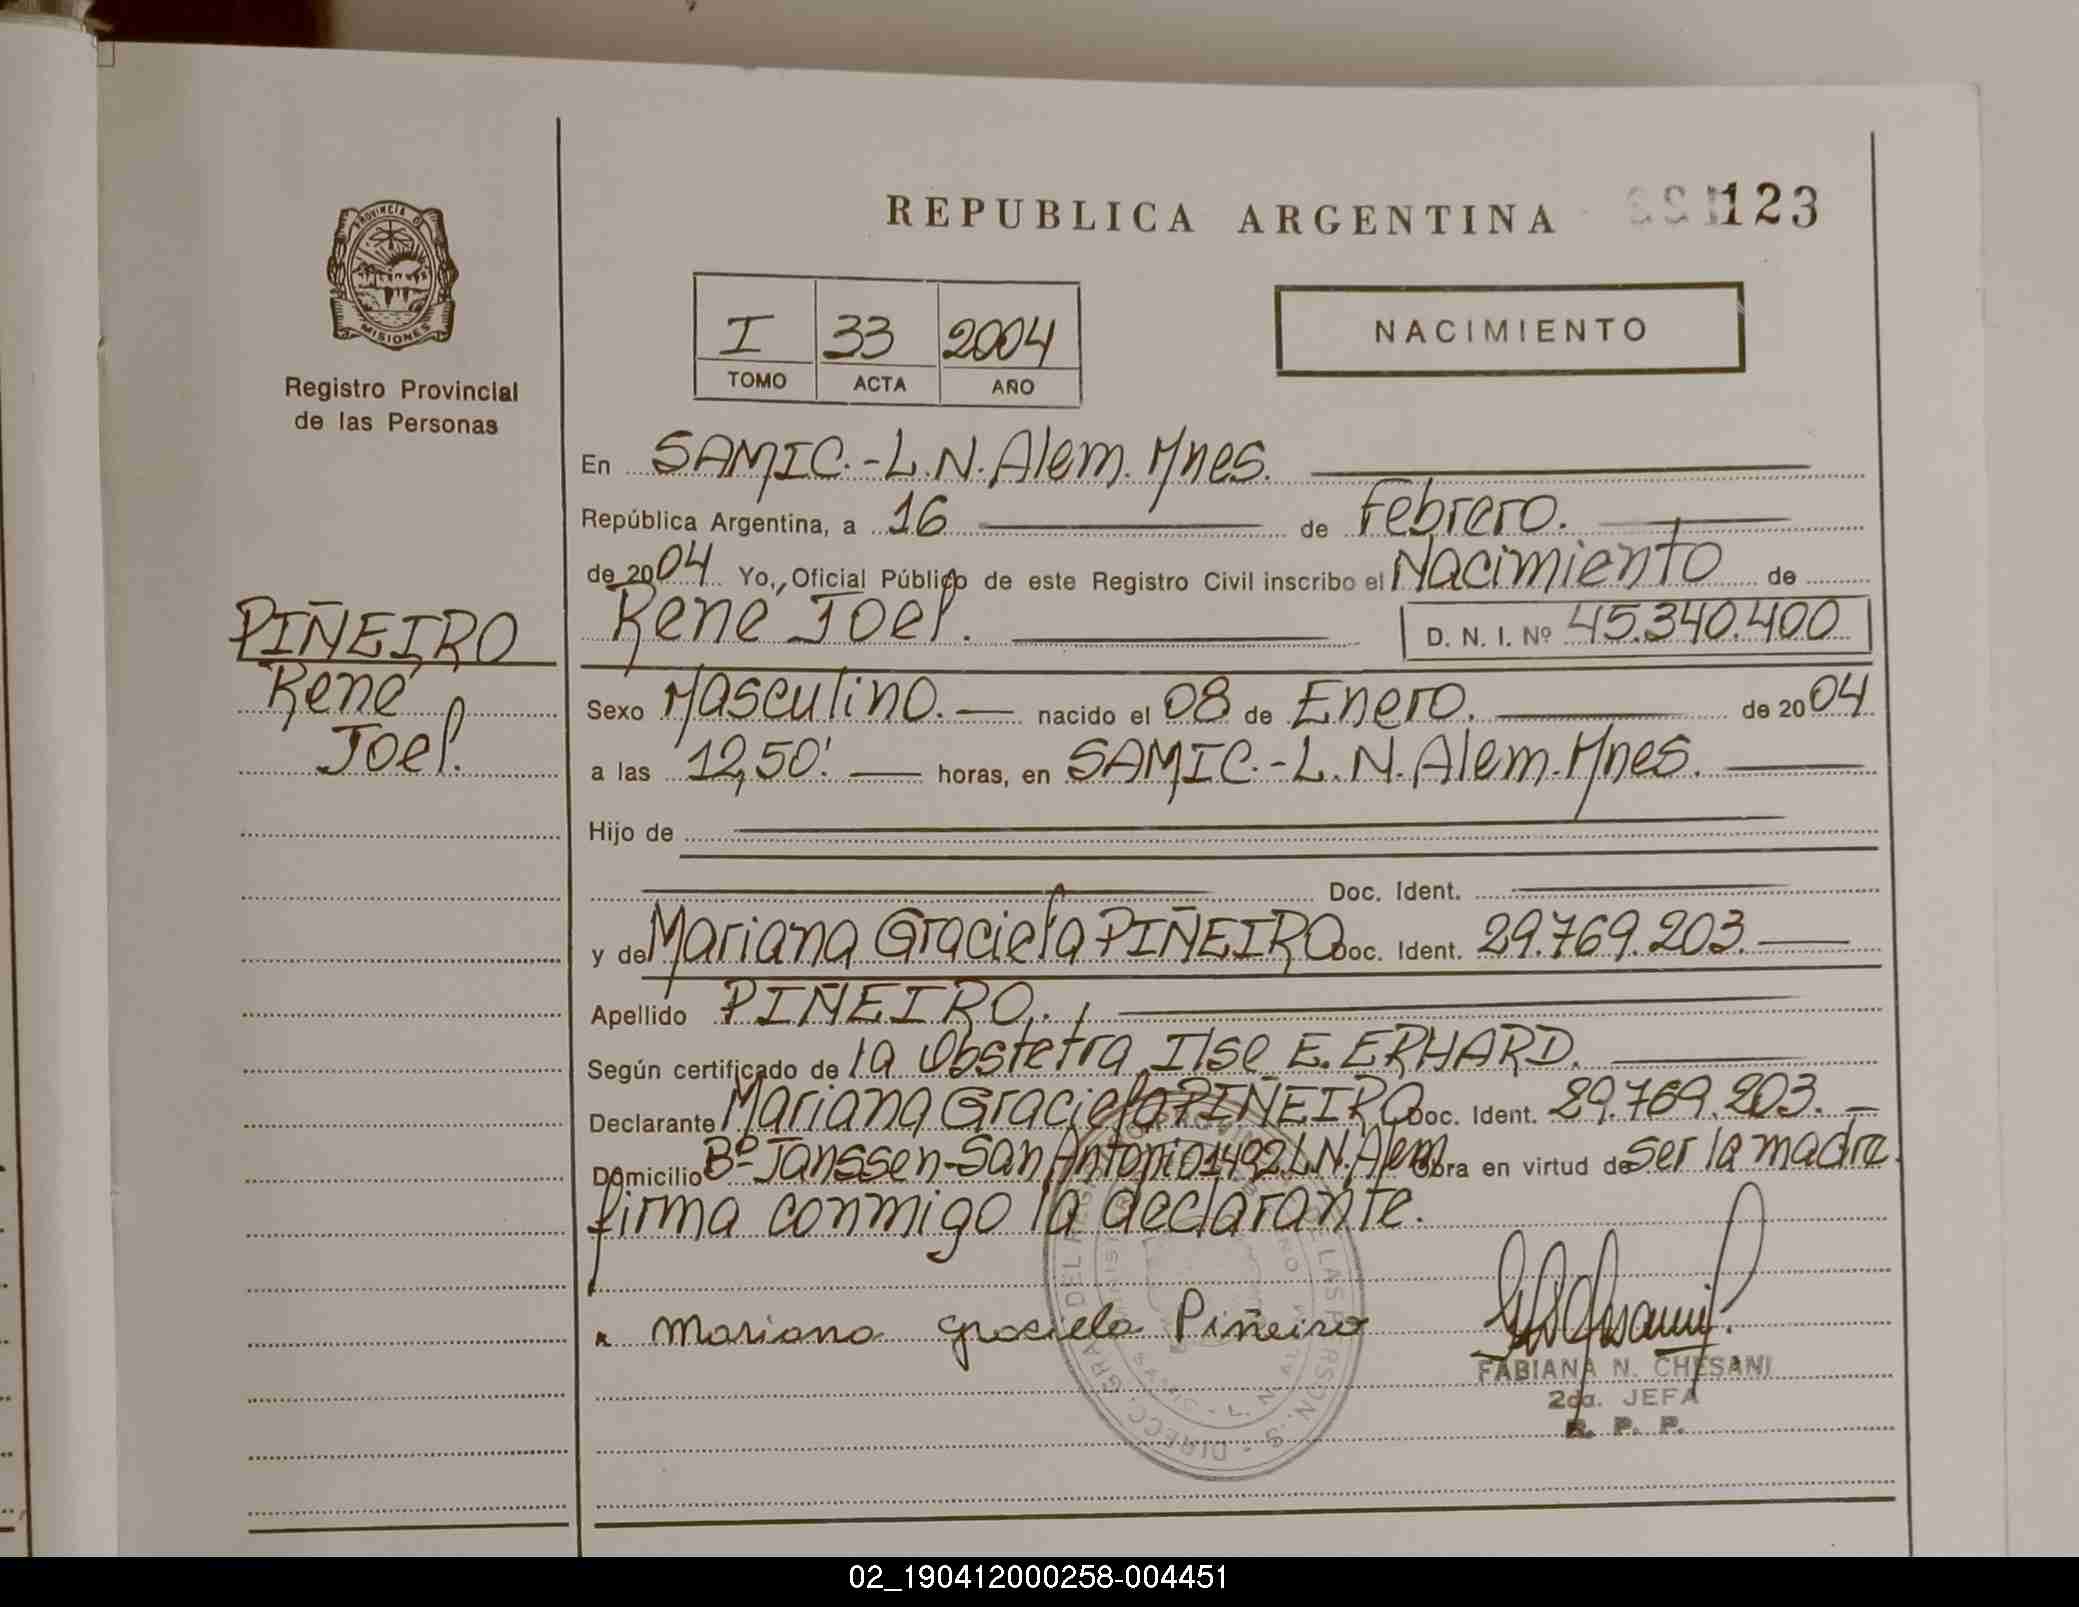 PROVINCIA DE
MISIONES
REPUBLICA ARGENTINA 123
NACIMIENTO
I 33 2004
TOMO ACTA AÑO
Registro Provincial
de las Personas
En SAMIC.-L.N.Alem.Mnes.
República Argentina, a 16 de Febrero.
de 2004 Yo, Oficial Público de este Registro Civil inscribo el Nacimiento de
René Joel. D. N. I. Nº 45.340.400
PIÑEIRO
René
Joel.
Sexo Masculino. nacido el 08 de Enero. de 2004
a las 12,50'. horas, en SAMIC.-L.N.Alem.Mnes.
Hijo de
Doc. Ident.
y de Mariana Graciela PIÑEIRO Doc. Ident. 29.769.203.
Apellido PIÑEIRO.
Según certificado de la Obstetra, Ilse E. ERHARD.
Declarante Mariana Graciela PIÑEIRO Doc. Ident. 29.769.203.
Domicilio Bº Janssen-San Antonio 1492 L.N.Alem Obra en virtud de ser la madre.
firma conmigo la declarante.
Mariana Graciela Piñeiro
FABIANA N. CHESANI
2da. JEFA
R. P. P.
02_190412000258-004451